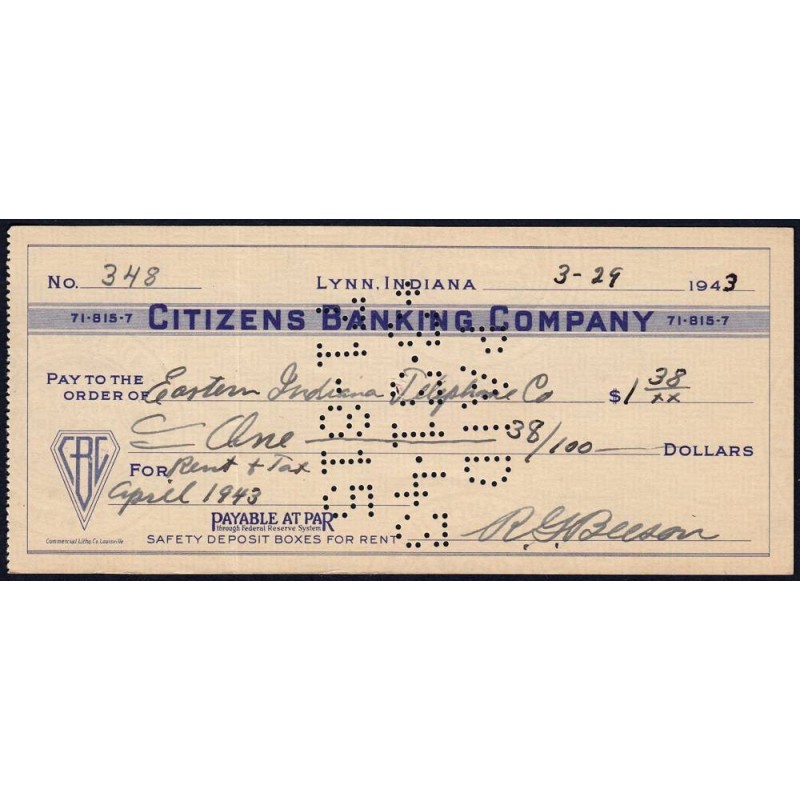 No. 348 Lynn, Indiana 3-29 1943
71-815-7 Citizens Banking Company 71-815-7
Pay to the order of Eastern Indiana Telephone Co $1 38/xx
One 38/100 Dollars
CBC
For Rent + Tax
April 1943
Payable at Par
through Federal Reserve System
Safety Deposit Boxes for Rent R. G. Beeson
Commercial Litho. Co. Louisville
PAID